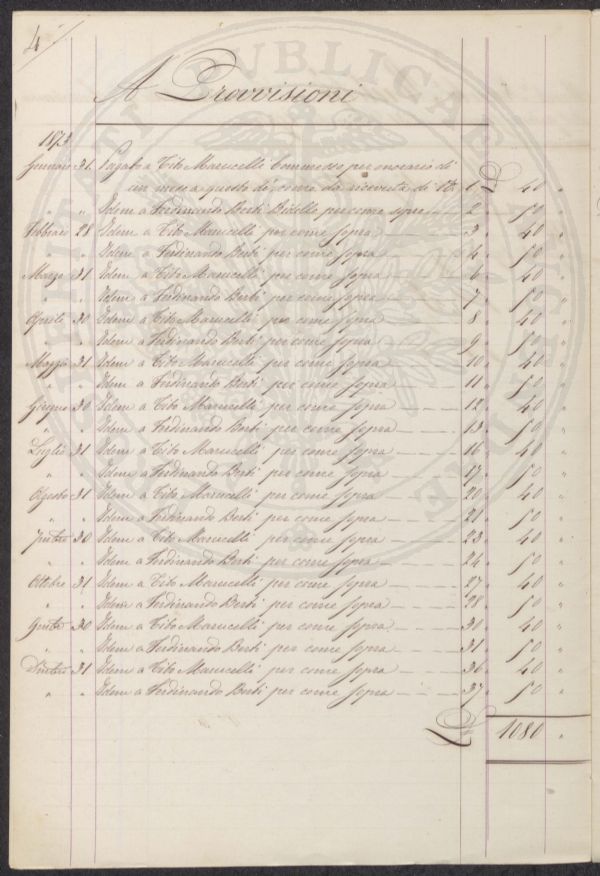 4
A Provvisioni
1873
Gennaio 31. Pagato a Tito Marucelli Commesso per onorario di
un mese a questo dì come da ricevuta di N. 1. £ 40 "
" " Idem a Ferdinando Berti Bidello per come sopra 2 " 50 "
Febbraio 28 Idem a Tito Marucelli per come sopra 3 " 40 "
" " Idem a Ferdinando Berti per come sopra 4 " 50 "
Marzo 31 Idem a Tito Marucelli per come sopra 6 " 40 "
" " Idem a Ferdinando Berti per come sopra 7 " 50 "
Aprile 30 Idem a Tito Marucelli per come sopra 8 " 40 "
" " Idem a Ferdinando Berti per come sopra 9 " 50 "
Maggio 31 Idem a Tito Marucelli per come sopra 10 " 40 "
" " Idem a Ferdinando Berti per come sopra 11 " 50 "
Giugno 30 Idem a Tito Marucelli per come sopra 12 " 40 "
" " Idem a Ferdinando Berti per come sopra 13 " 50 "
Luglio 31 Idem a Tito Marucelli per come sopra 16 " 40 "
" " Idem a Ferdinando Berti per come sopra 17 " 50 "
Agosto 31 Idem a Tito Marucelli per come sopra 20 " 40 "
" " Idem a Ferdinando Berti per come sopra 21 " 50 "
7mbre 30 Idem a Tito Marucelli per come sopra 23 " 40 "
" " Idem a Ferdinando Berti per come sopra 24 " 50 "
Ottobre 31 Idem a Tito Marucelli per come sopra 27 " 40 "
" " Idem a Ferdinando Berti per come sopra 28 " 50 "
9mbre 30 Idem a Tito Marucelli per come sopra 30 " 40 "
" " Idem a Ferdinando Berti per come sopra 31 " 50 "
Dmbre 31 Idem a Tito Marucelli per come sopra 36 " 40 "
" " Idem a Ferdinando Berti per come sopra 37 " 50 "
£ 1080 "
PUBLICAE